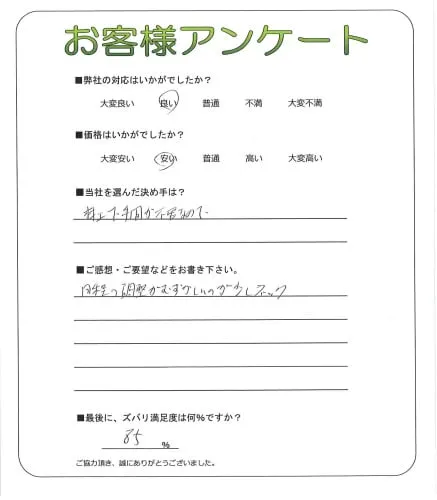 お客様アンケート
■弊社の対応はいかがでしたか？
大変良い 良い 普通 不満 大変不満
■価格はいかがでしたか？
大変安い 安い 普通 高い 大変高い
■当社を選んだ決め手は？
手間が不要なので
■ご感想・ご要望などをお書き下さい。
日程の調整がむずかしいのが少しネック
■最後に、ズバリ満足度は何％ですか？
85 ％
ご協力頂き、誠にありがとうございました。